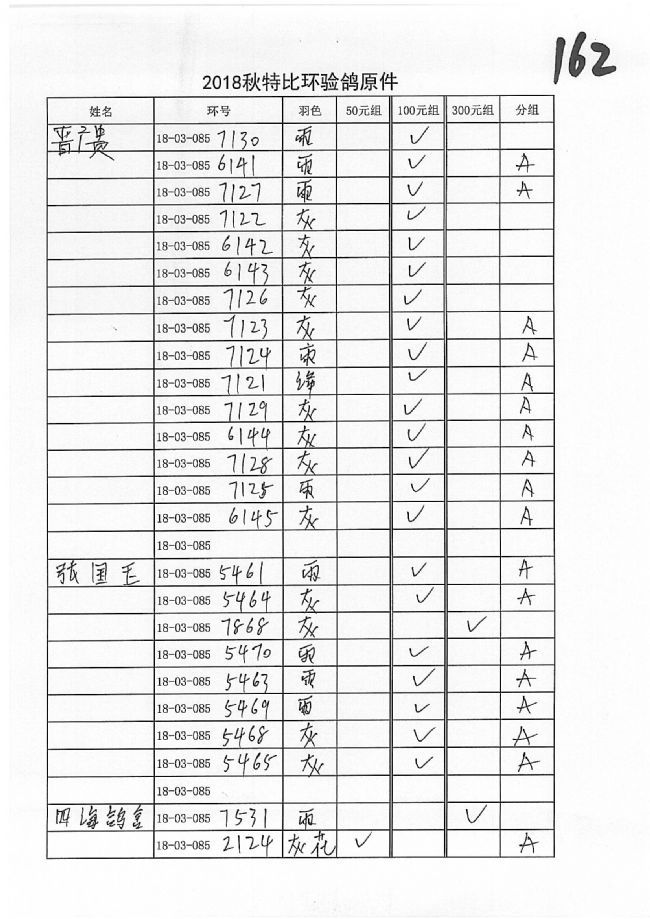 162
2018秋特比环验鸽原件
姓名 环号 羽色 50元组 100元组 300元组 分组
18-03-085 7130 雨 ✓
18-03-085 6141 雨 ✓ A
18-03-085 7127 雨 ✓ A
18-03-085 7122 灰 ✓
18-03-085 6142 灰 ✓
18-03-085 6143 灰 ✓
18-03-085 7126 灰 ✓
18-03-085 7123 灰 ✓ A
18-03-085 7124 ✓ A
18-03-085 7121 绛 ✓ A
18-03-085 7129 灰 ✓ A
18-03-085 6144 灰 ✓ A
18-03-085 7128 灰 ✓ A
18-03-085 7125 雨 ✓ A
18-03-085 6145 灰 ✓ A
18-03-085
张国王 18-03-085 5461 雨 ✓ A
18-03-085 5464 灰 ✓ A
18-03-085 7868 灰 ✓
18-03-085 5470 雨 ✓ A
18-03-085 5463 雨 ✓ A
18-03-085 5469 雨 ✓ A
18-03-085 5468 灰 ✓ A
18-03-085 5465 灰 ✓ A
18-03-085
四海鸽舍 18-03-085 7531 雨 ✓
18-03-085 2124 灰花 ✓ A